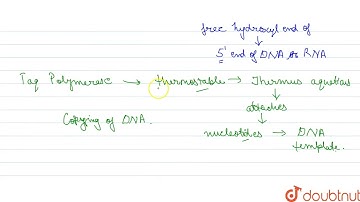 free hydroxyl end of
5' end of DNA or RNA
Taq Polymerase → thermostable → Thermus aquatius
attaches
Copying of DNA.
nucleotides → DNA
template.
doubtnut